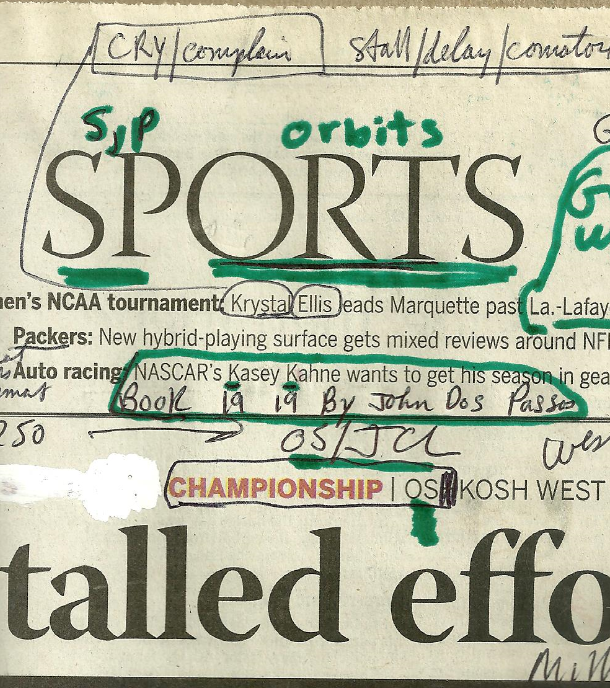 CRY/complain stall/delay/comatos
S,P orbits
SPORTS
men's NCAA tournament: Krystal Ellis leads Marquette past La.-Lafay
Packers: New hybrid-playing surface gets mixed reviews around NF
Auto racing: NASCAR's Kasey Kahne wants to get his season in gea
Book 19 19 By John Dos Passos
250 OS/JCL Wes
CHAMPIONSHIP | OSHKOSH WEST
talled effo